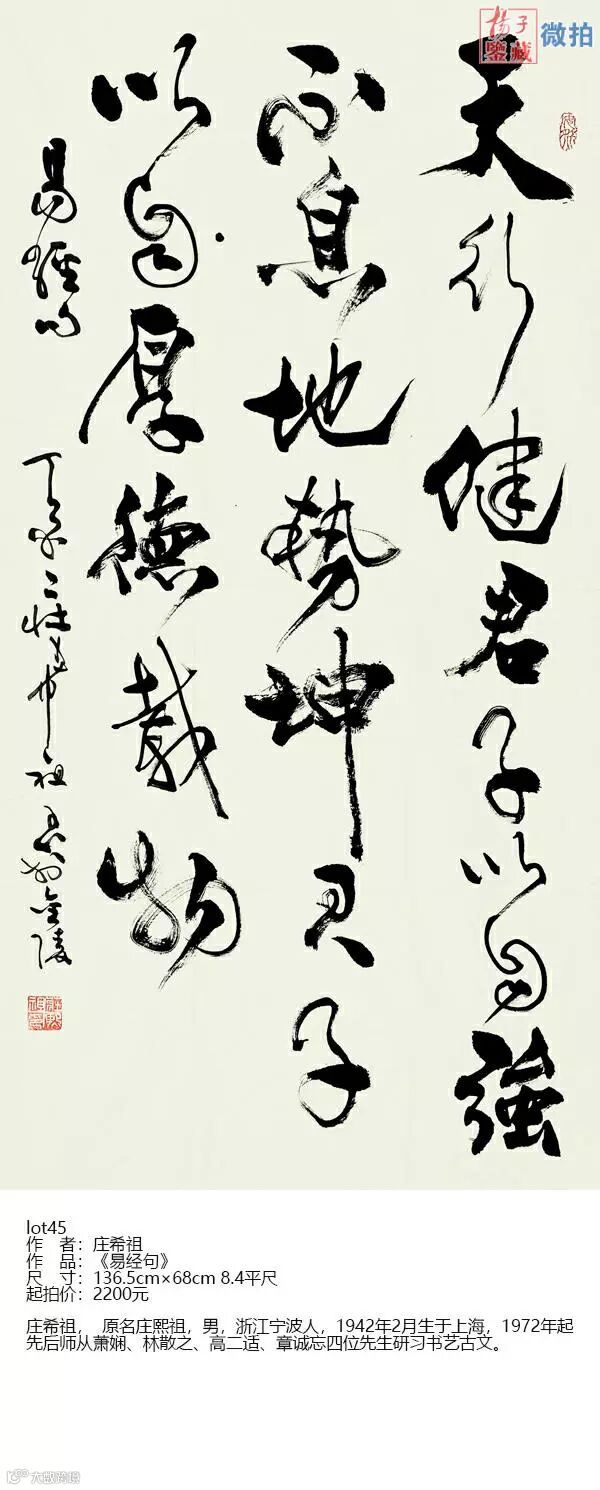 楊子
鑒藏
微拍
天行健君子以自強
不息地勢坤君子
以自厚德載物
易經句
丁亥 莊希祖書於金陵
lot45
作 者：庄希祖
作 品：《易经句》
尺 寸：136.5cm×68cm 8.4平尺
起拍价：2200元
庄希祖， 原名庄熙祖，男，浙江宁波人，1942年2月生于上海，1972年起
先后师从萧娴、林散之、高二适、章诚忘四位先生研习书艺古文。
大数跨境